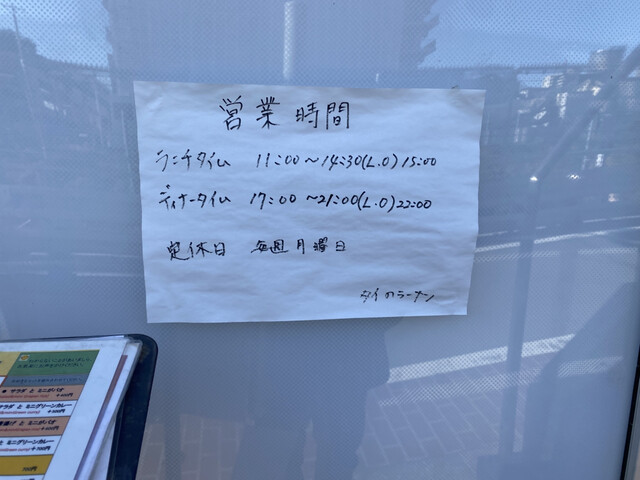 営業時間
ランチタイム 11:00～14:30(L.O) 15:00
ディナータイム 17:00～21:00(L.O) 22:00
定休日 毎週月曜日
タイのラーメン
サラダ と ミニガパオ
サラダ と ミニグリーンカレー
と ミニガパオ
と ミニグリーンカレー